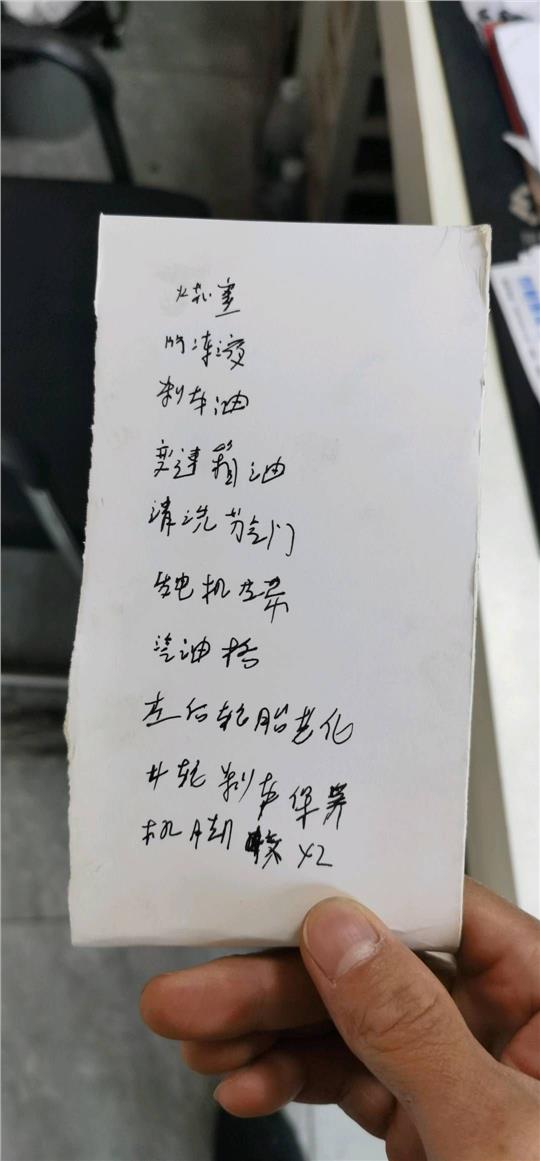 火花塞
防冻液
刹车油
变速箱油
清洗节气门
发电机皮带
汽油格
左后轮胎老化
4轮刹车保养
机脚胶 x2